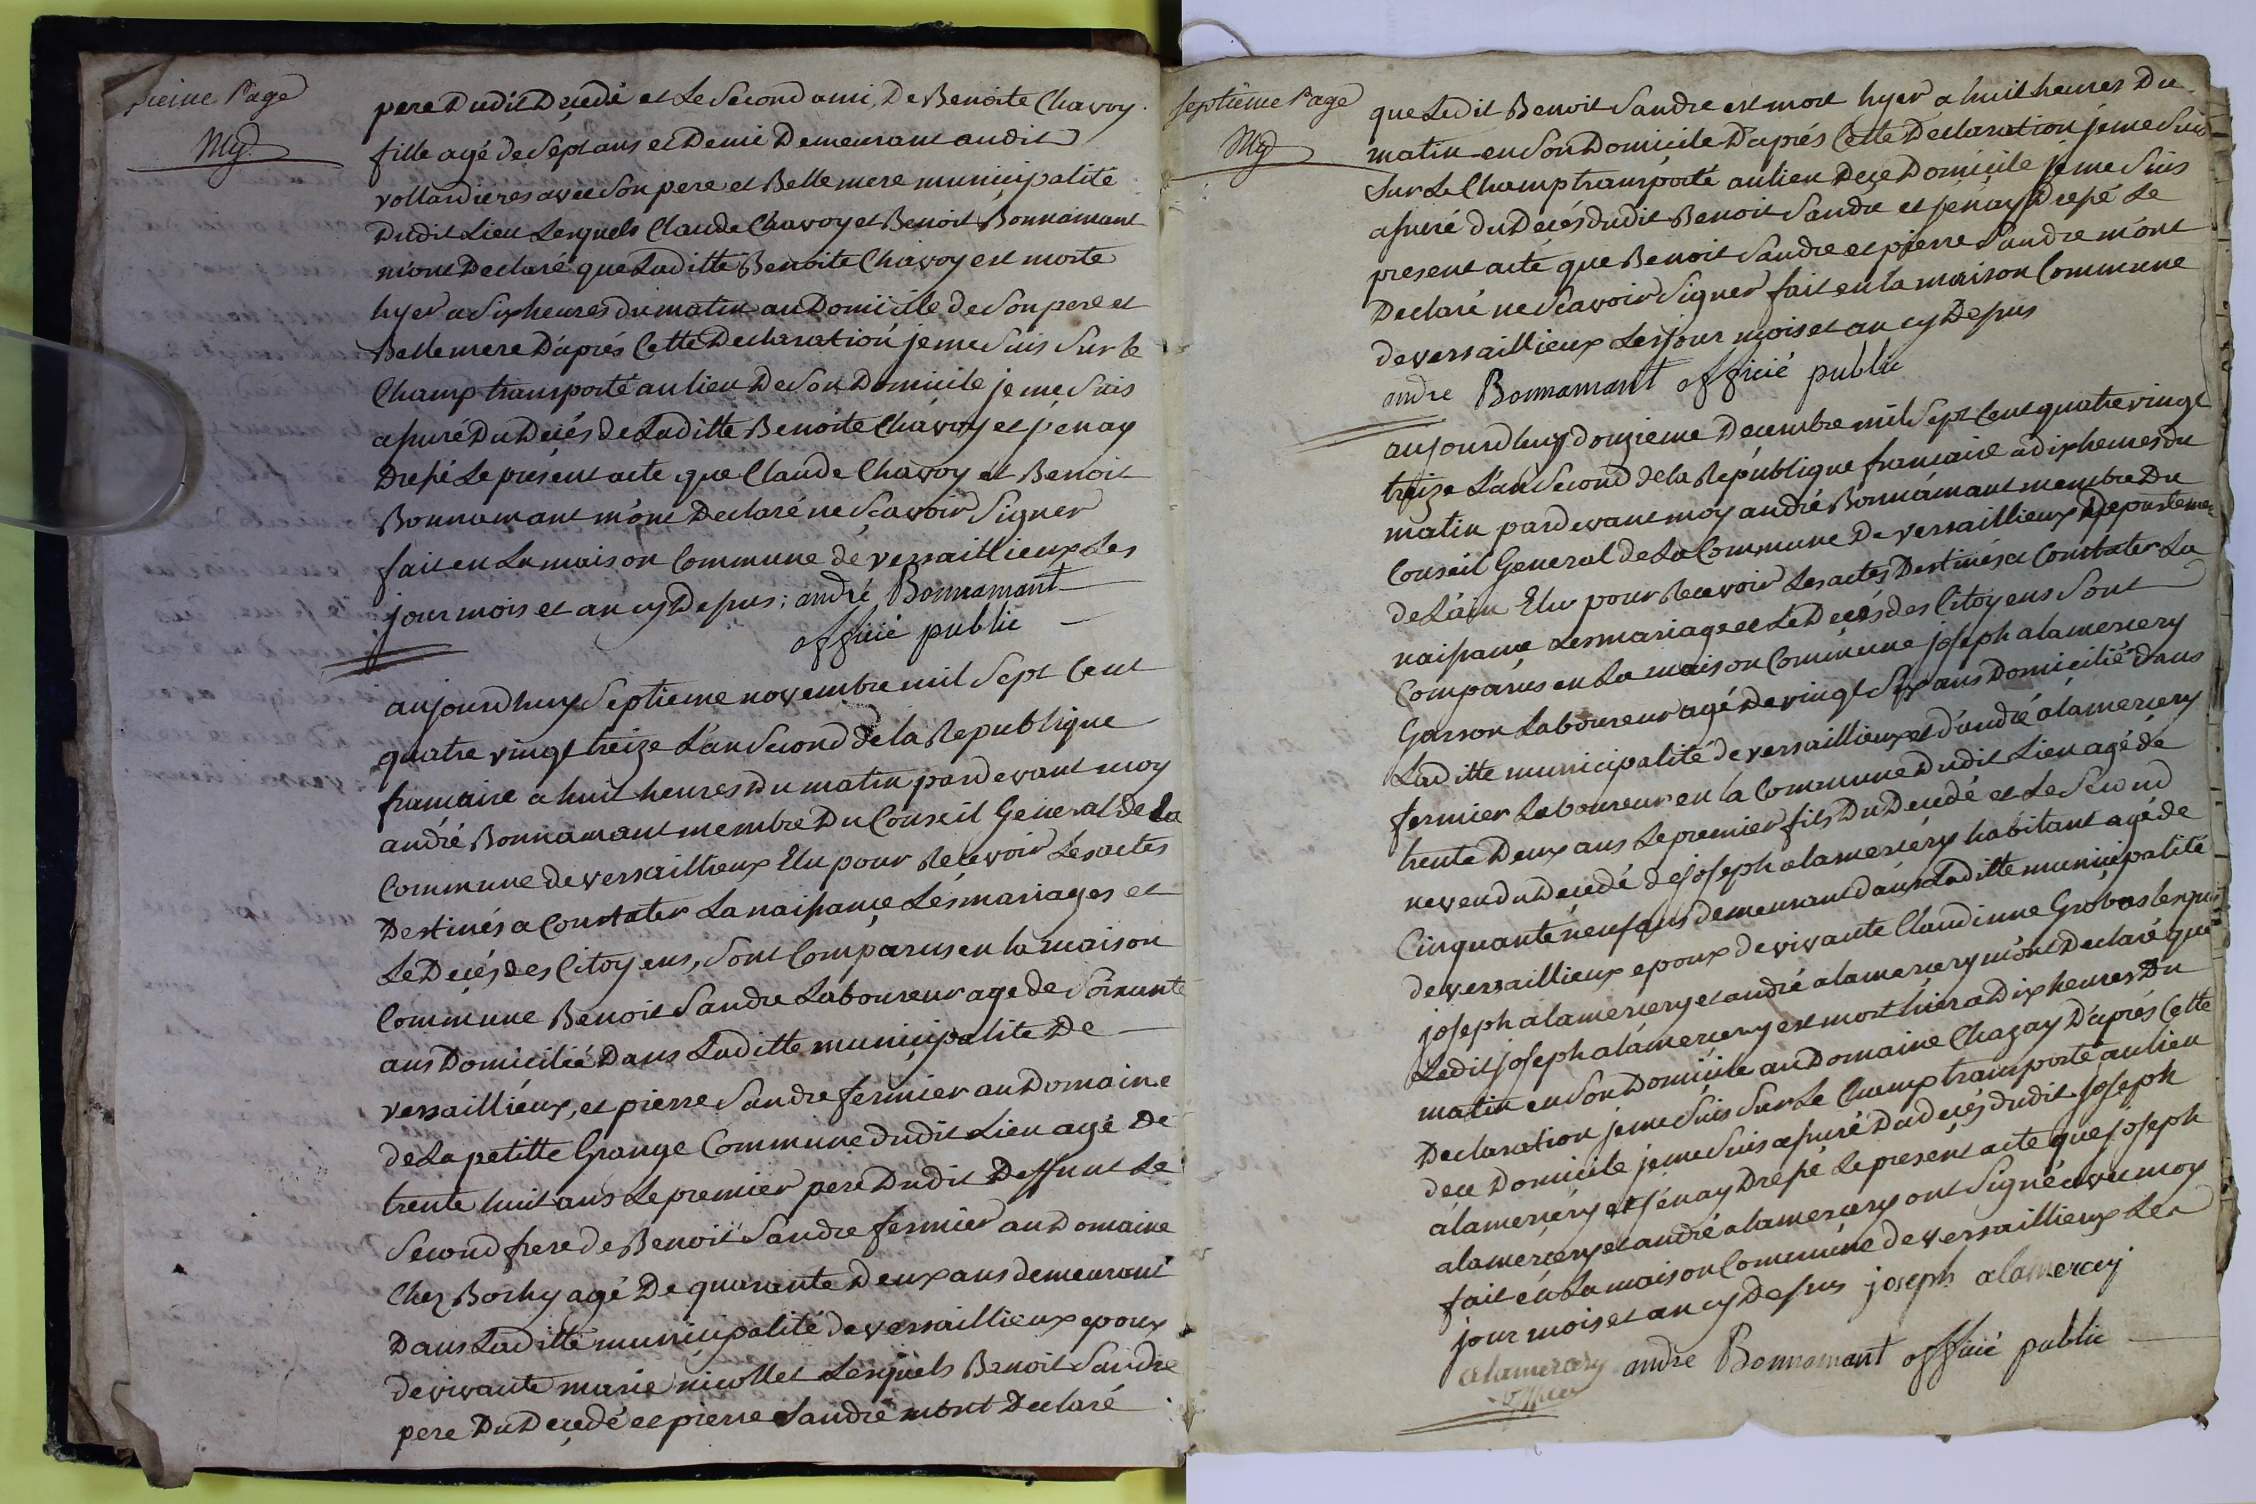 sieme Page
Myd
pere Dudit Decedé et Le Second ami, De Benoite Chavoy
fille agé de Sept ans et Demie Demeurant audit
vollardieres avec Son pere et Belle mere municipalité
Dudit Lieu Lesquels Claude Chavoy et Benoit Bonnamant
m'ont Declaré que Laditte Benoite Chavoy est morte
hyer a Six heures du matin au Domicille de Son pere et
Belle mere D'aprés Cette Declaration je me Suis Sur le
Champ transporté au lieu De Son Domicile je me Suis
assuré Du Decés de Laditte Benoite Chavoy et j'enay
Dressé Le present acte que Claude Chavoy et Benoit
Bonnamant m'ont Declaré ne Scavoir Signer
fait en La maison Commune de versaillieux Les
jour mois et an cy Dessus : andré Bonnamant
officié public
aujourdhuy Septieme novembre mil Sept Cent
quatre vingt treize L'an Second de la Republique
francaise a huit heures du matin pardevant moy
andré Bonnamant membre Du Conseil General de La
Commune de versaillieux Elu pour Recevoir Les actes
Destinés a Constater La naissance Les mariages et
Le Decés des Citoyens, Sont Comparus en la maison
Commune Benoit Sandre Laboureur age de Soixante
ans Domicilié Dans Laditte municipalite De
versaillieux, et pierre Sandre fermier au Domaine
de La petitte Grange Commune dudit Lieu agé de
trente huit ans Le premier pere Dudit Deffunt Le
Second frere de Benoit Sandre fermier au Domaine
Chez Borhy agé De quarante Deux ans demeurant
Dans Laditte municipalité de versaillieux epoux
de vivante marie nicollet Lesquels Benoit Sandre
pere Du Decedé et pierre Sandre m'ont Declaré
Septieme Page
Myd
que Ledit Benoit Sandre est mort hyer a huit heures Du
matin en Son Domicile D'aprés Cette Declaration je me Suis
Sur Le Champ transporté au lieu De Ce Domicile je me Suis
assuré Du Decés dudit Benoit Sandre et j'enay Dressé Le
present acte que Benoit Sandre et pierre Sandre m'ont
Declaré ne Scavoir Signer fait en la maison Commune
de versaillieux Les jour mois et an cy Dessus
andre Bonnamant officié public
aujourdhuy douzieme Decembre mil Sept Cent quatre vingt
treize L'an Second de la Republique francaise a dix heures du
matin pardevant moy andré Bonnamant membre Du
Conseil General de La Commune De versaillieux Departement
de L'ain Elu pour Recevoir Les actes Destinés a Constater La
naissance Les mariage et Le Decés des Citoyens Sont
Comparus en La maison Commune joseph alamerciery
Garson Laboureur agé De vingt Six ans Domicilié dans
Laditte municipalité de versaillieux et d'andré alamerciery
fermier Laboureur en la Commune Dudit Lieu agé de
trente Deux ans Le premier fils Du Decedé et Le Second
neveu du Decedé de joseph alamerciery habitant agé de
Cinquante neuf ans demeurant dans Laditte municipalité
de versaillieux epoux de vivante Claudinne Grobas lesquels
joseph alamerciery et andré alamerciery m'ont Declaré que
Ledit joseph alamerciery est mort hier a Dix heures Du
matin en Son Domicile au Domaine Chazay D'aprés Cette
Declaration je me Suis Sur Le Champ transporté au lieu
de ce Domicile je me Suis assuré Du decés dudit joseph
alamerciery et j'enay Dressé Le present acte que joseph
alamerciery et andré alamerciery ont Signé avec moy
fait en La maison Commune de versaillieux Les
jour mois et an cy Dessus joseph alamercey
alamercery andre Bonnamant officié public